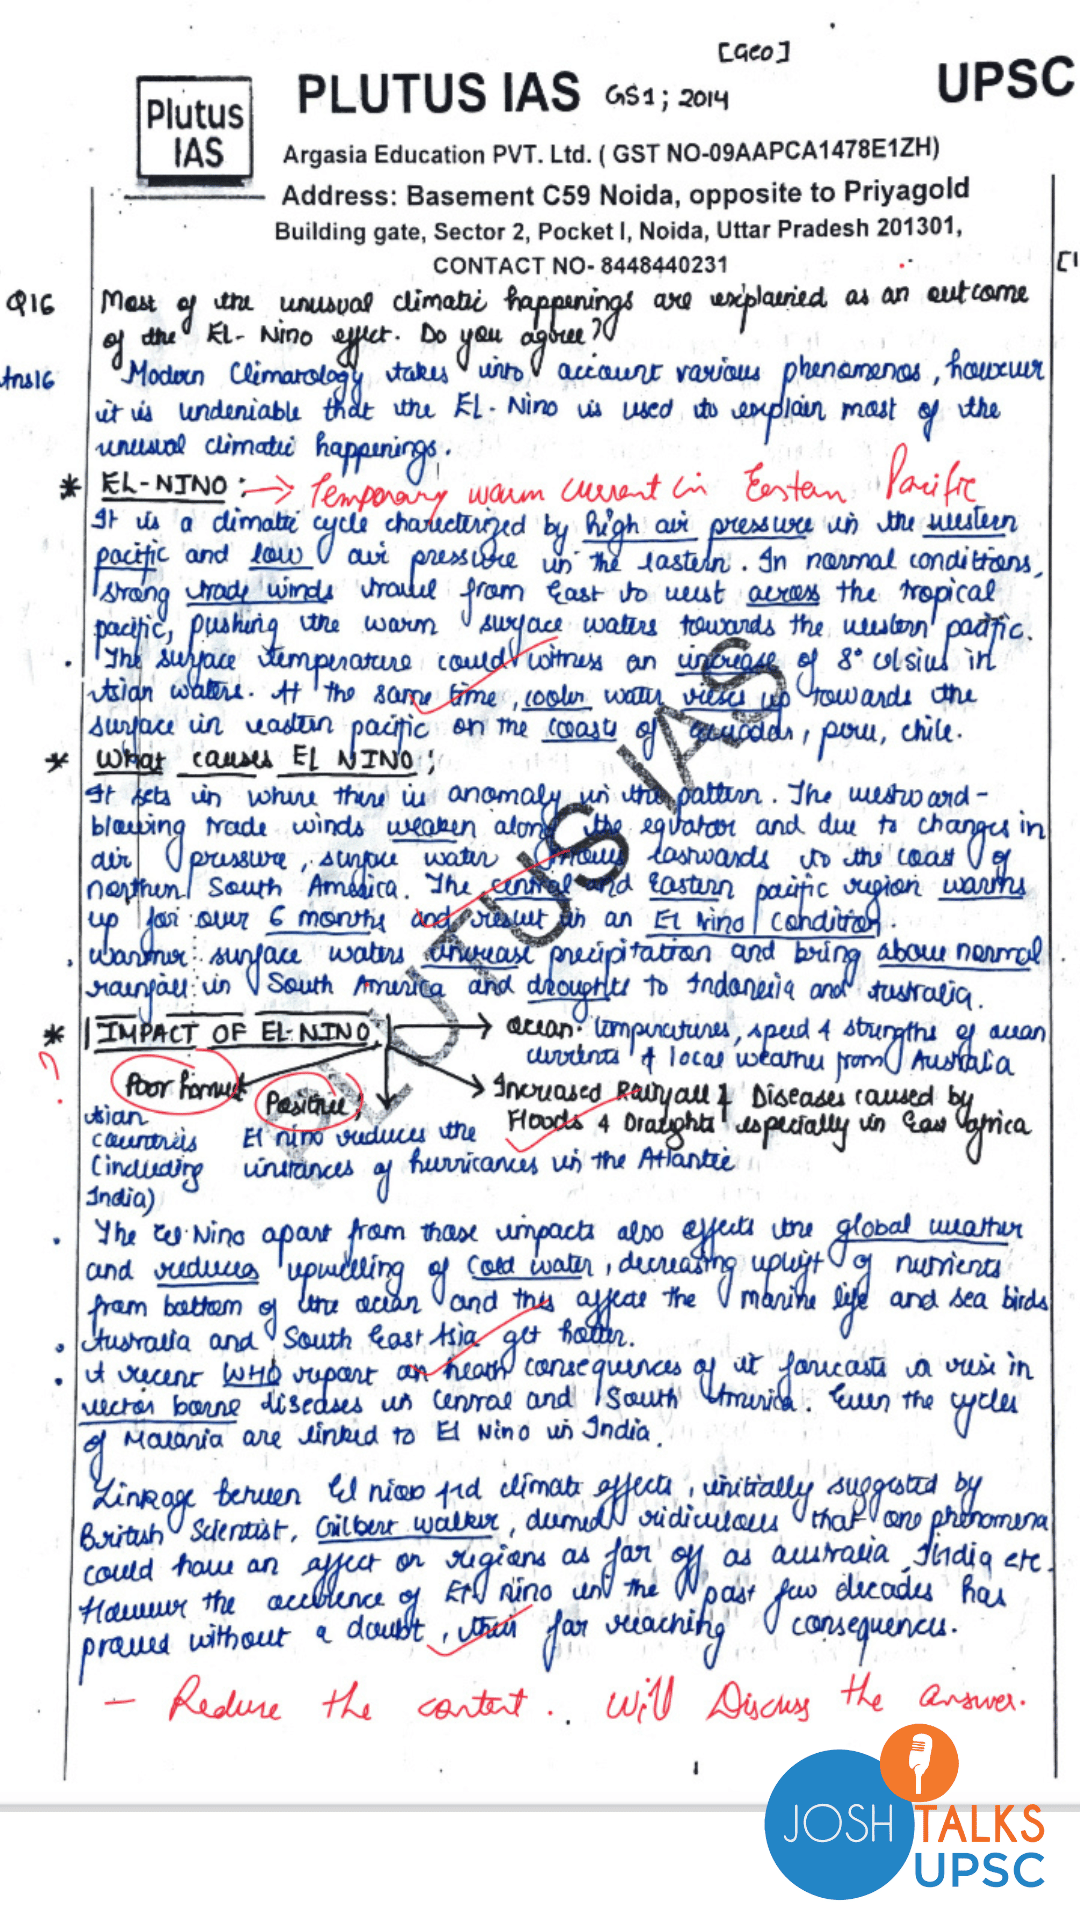 [Geo]
Plutus
IAS
PLUTUS IAS GS1; 2014
UPSC
Argasia Education PVT. Ltd. ( GST NO-09AAPCA1478E1ZH)
Address: Basement C59 Noida, opposite to Priyagold
Building gate, Sector 2, Pocket I, Noida, Uttar Pradesh 201301,
CONTACT NO- 8448440231
Q16 Most of the unusual climatic happenings are explained as an outcome
of the EL-Nino effect. Do you agree?
Ans16 Modern Climatology takes into account various phenomenas, however
it is undeniable that the EL-Nino is used to explain most of the
unusual climatic happenings.
* EL-NINO: → Temporary warm current in Eastern Pacific
It is a climatic cycle charecterized by high air pressure in the western
pacific and low air pressure in the eastern. In normal conditions,
strong trade winds travel from East to west across the tropical
pacific, pushing the warm surface waters towards the western pacific.
• The surface temperature could witness an increase of 8° celsius in
Asian waters. At the same time, cooler water rises up towards the
surface in eastern pacific on the coasts of ecuador, peru, chile.
* What causes EL NINO;
It sets in where there is anomaly in the pattern. The westward-
blowing trade winds weaken along the equator and due to changes in
air pressure, surface water moves eastwards to the coast of
northern South America. The central and Eastern pacific region warms
up for over 6 months and result in an El Nino condition.
• warmer surface waters increase precipitation and bring above normal
rainfall in South America and droughts to Indonesia and Australia.
* IMPACT OF EL-NINO → ocean temperatures, speed & strengths of ocean
currents & local weather from Australia
?
Poor harvest
Positive;
→ Increased Rainfall & Diseases caused by
Floods & Draughts especially in East Africa
Asian
countries
(including
India)
El nino reduces the
instances of hurricances in the Atlantic
• The El-Nino apart from those impacts also effects the global weather
and reduces upwelling of cold water, decreasing uplift of nutrients
from bottom of the ocean and this affects the marine life and sea birds
• Australia and South East Asia get hotter.
• A recent WHO report on heath consequences of it forecasts a rise in
vector borne diseases in Central and South America. Even the cycles
of Malaria are linked to El Nino in India.
Linkage between El nino and climate effects, initially suggested by
British Scientist, Gilbert walker, deemed ridiculous that one phenomena
could have an affect on regions as far off as australia, India etc.
However the occurence of El nino in the past few decades has
proved without a doubt, their far reaching consequences.
- Reduce the content. Will Discuss the answer.
PLUTUS IAS
1
JOSH TALKS
UPSC